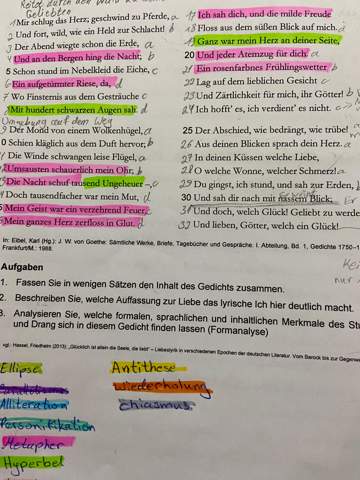 Ritt durch den Wald zu
Geliebten
1 Mir schlug das Herz, geschwind zu Pferde, a
2 Und fort, wild, wie ein Held zur Schlacht! b
3 Der Abend wiegte schon die Erde, a
4 Und an den Bergen hing die Nacht; b
5 Schon stund im Nebelkleid die Eiche, c
6 Ein aufgetürmter Riese, da, d
7 Wo Finsternis aus dem Gesträuche c
8 Mit hundert schwarzen Augen sah. d
Umgebung auf dem Weg
9 Der Mond von einem Wolkenhügel, a
0 Schien kläglich aus dem Duft hervor; b
Die Winde schwangen leise Flügel, a
2 Umsausten schauerlich mein Ohr; b
3 Die Nacht schuf tausend Ungeheuer – c
4 Doch tausendfacher war mein Mut, d
5 Mein Geist war ein verzehrend Feuer, c
6 Mein ganzes Herz zerfloss in Glut. d
17 Ich sah dich, und die milde Freude
18 Floss aus dem süßen Blick auf mich.
19 Ganz war mein Herz an deiner Seite,
20 Und jeder Atemzug für dich.
21 Ein rosenfarbnes Frühlingswetter
22 Lag auf dem lieblichen Gesicht
23 Und Zärtlichkeit für mich, ihr Götter!
24 Ich hofft' es, ich verdient' es nicht.
25 Der Abschied, wie bedrängt, wie trübe!
26 Aus deinen Blicken sprach dein Herz.
27 In deinen Küssen welche Liebe,
28 O welche Wonne, welcher Schmerz!
29 Du gingst, ich stund, und sah zur Erden,
30 Und sah dir nach mit nassem Blick;
31 Und doch, welch Glück! Geliebt zu werde
32 Und lieben, Götter, welch ein Glück!
In: Eibel, Karl (Hg.): J. W. von Goethe: Sämtliche Werke, Briefe, Tagebücher und Gespräche. I. Abteilung, Bd. 1, Gedichte 1750–1
Frankfurt/M.: 1988.
Aufgaben
1. Fassen Sie in wenigen Sätzen den Inhalt des Gedichts zusammen.
2. Beschreiben Sie, welche Auffassung zur Liebe das lyrische Ich hier deutlich macht.
3. Analysieren Sie, welche formalen, sprachlichen und inhaltlichen Merkmale des Stu
und Drang sich in diesem Gedicht finden lassen (Formanalyse)
vgl.: Hassel, Friedhelm (2013): „Glücklich ist allein die Seele, die liebt" – Liebeslyrik in verschiedenen Epochen der deutschen Literatur. Vom Barock bis zur Gegenwa
Ellipse
Alliteration
Personifikation
Metapher
Hyperbel
Antithese
Wiederholung
Chiasmus